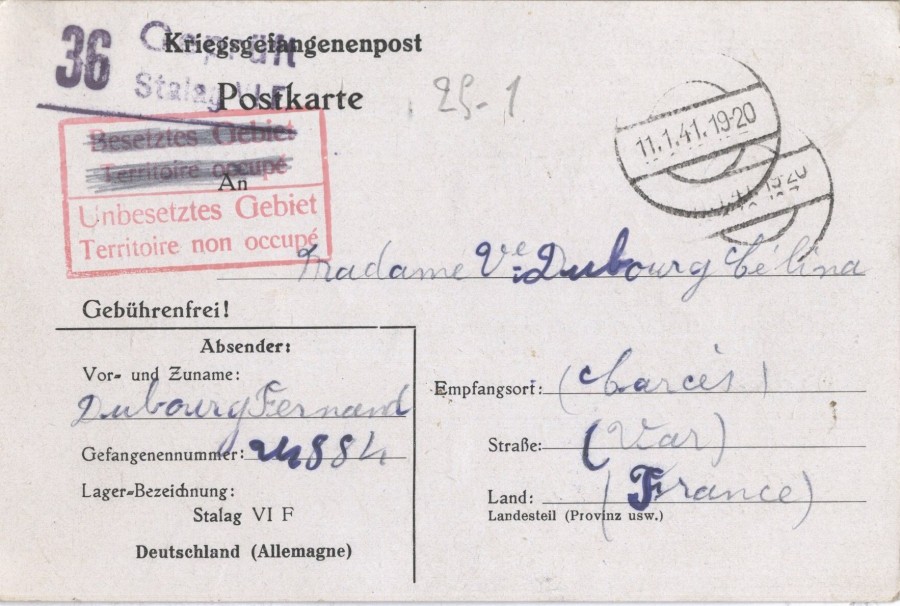 36
Geprüft
Stalag VI F
Kriegsgefangenenpost
Postkarte
25-1
11.1.41.19-20
Besetztes Gebiet
Territoire occupé
An
Unbesetztes Gebiet
Territoire non occupé
Madame Ve Dubourg Célina
Gebührenfrei!
Absender:
Vor- und Zuname:
Dubourg Fernand
Gefangenennummer: 24884
Lager-Bezeichnung:
Stalag VI F
Deutschland (Allemagne)
Empfangsort: (Carcès)
Straße: (Var)
Land: (France)
Landesteil (Provinz usw.)